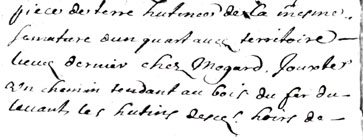 piece de terre hutineés de la mesme
semature dun quart aud territoire
lieux dernier chez Megard. Jouxte
un chemin tendant au bois du fer du
levant les hutins desd. hoirs de